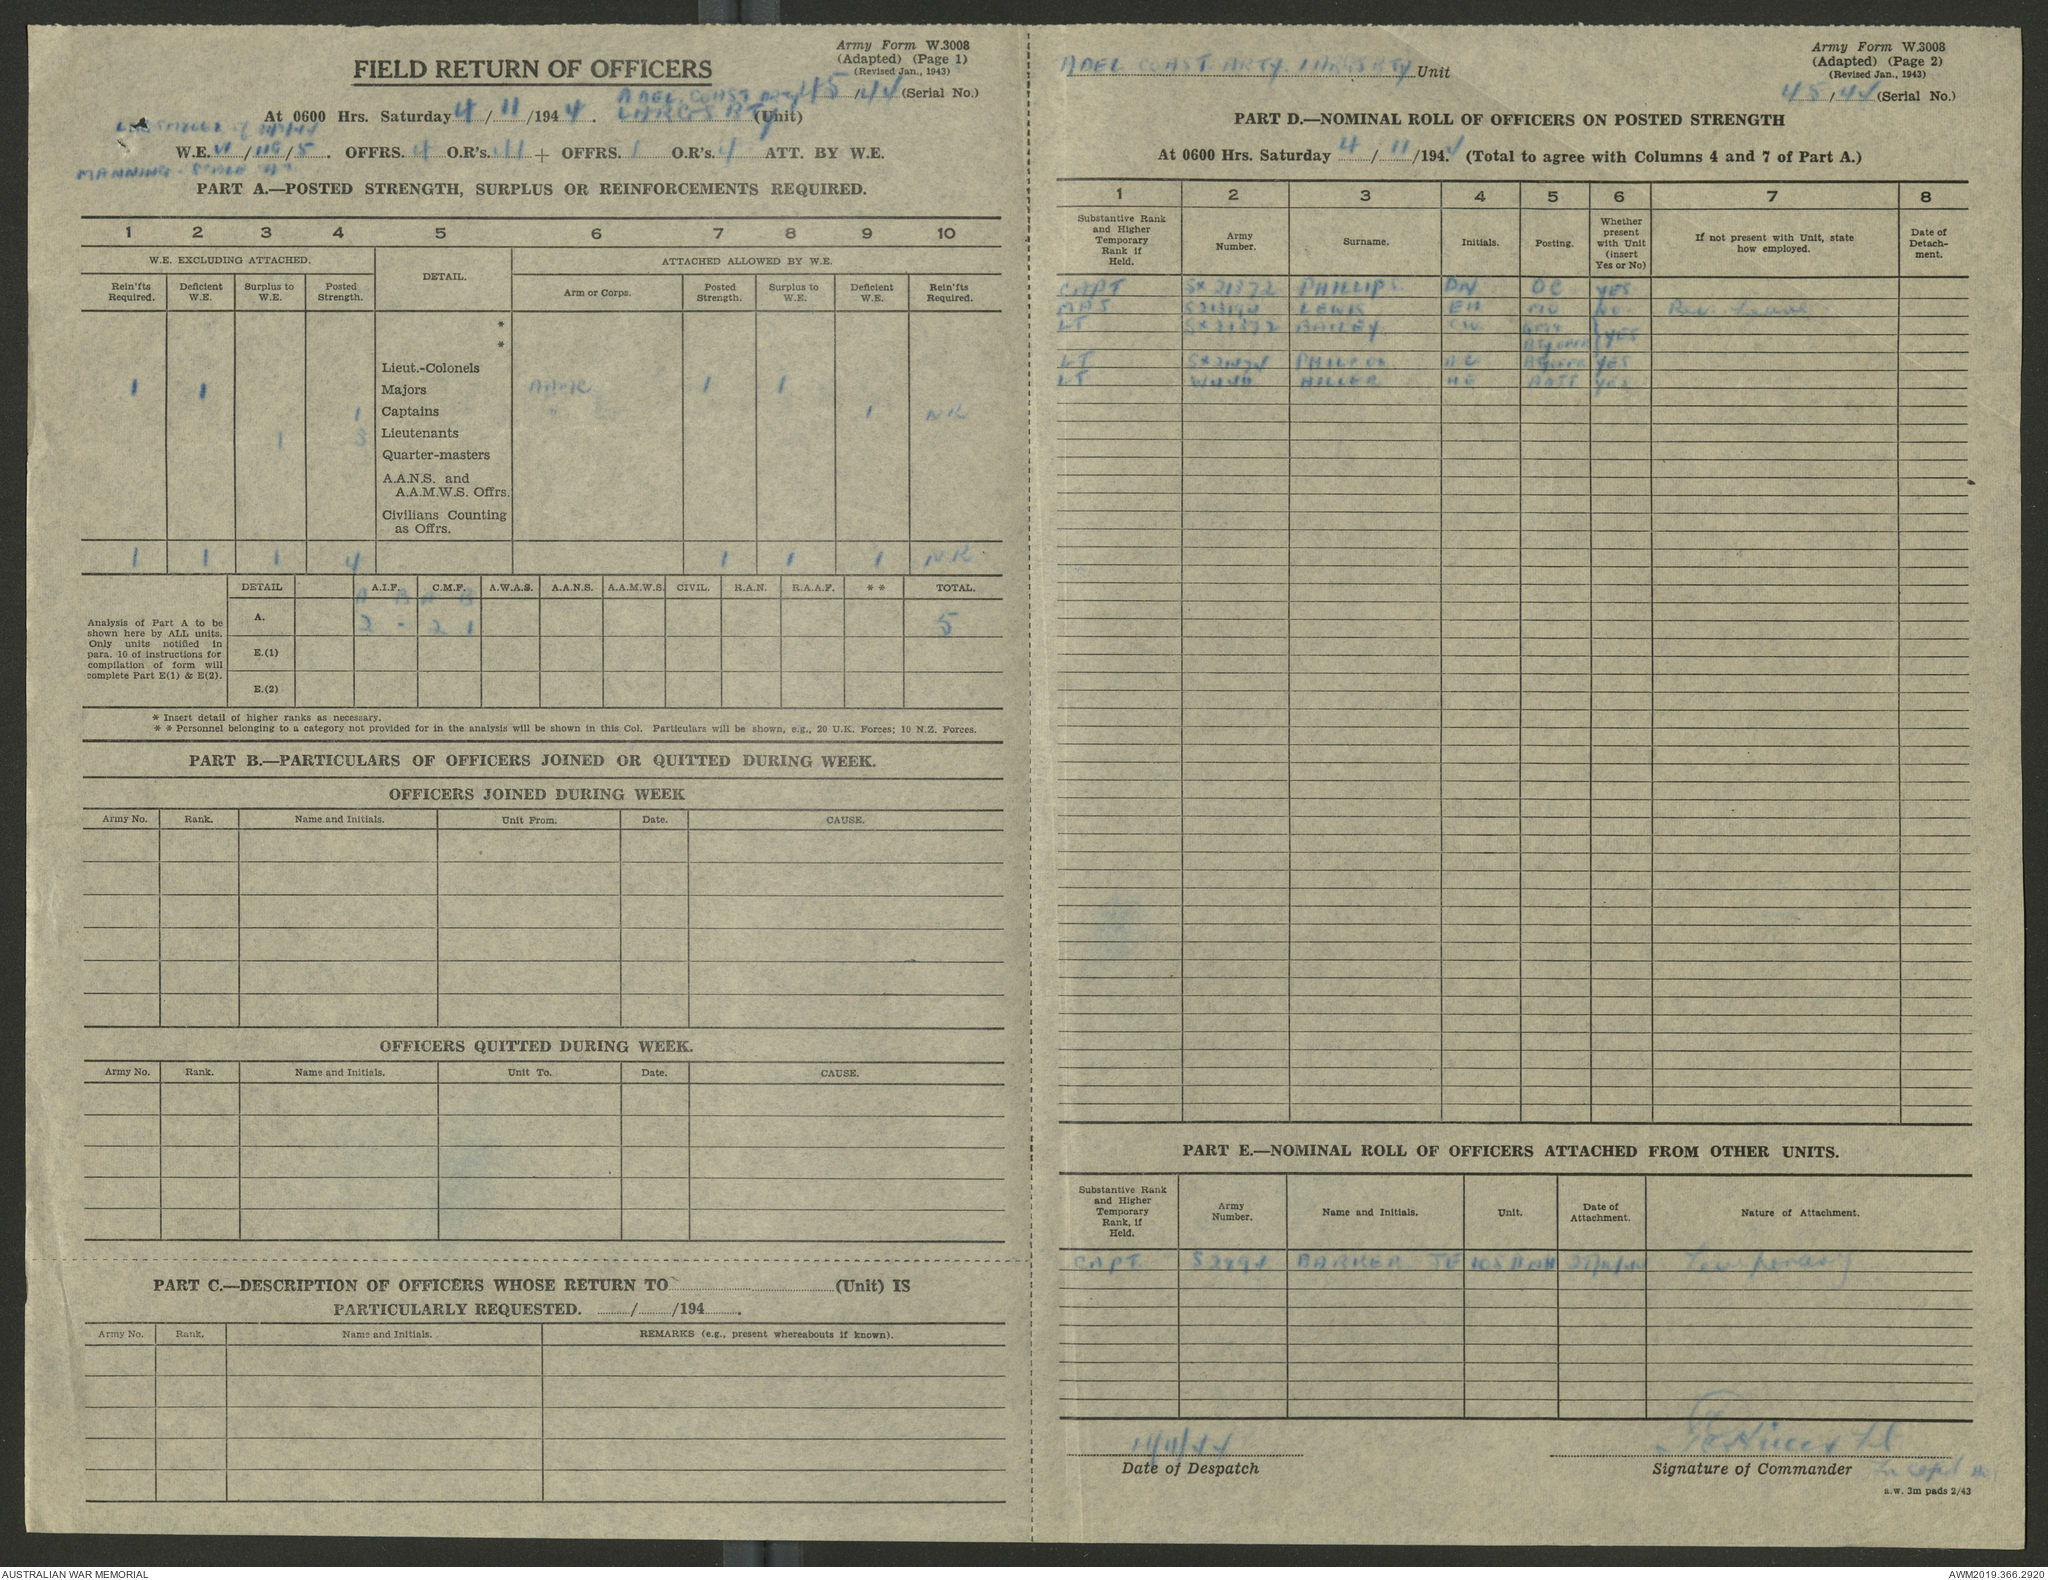 Army Form W.3008
(Adapted) (Page 1)
(Revised Jan., 1943)
FIELD RETURN OF OFFICERS
ADEL COAST Arty 45/44 (Serial No.)
At 0600 Hrs. Saturday 4/11/1944. LARGS BTY (Unit)
W.E. VI/116/5. OFFRS. 4 O.R's. 111 + OFFRS. 1 O.R's. 4 ATT. BY W.E.
MANNING SCALE "A"
PART A.—POSTED STRENGTH, SURPLUS OR REINFORCEMENTS REQUIRED.
1 2 3 4 5 6 7 8 9 10
W.E. EXCLUDING ATTACHED. DETAIL. ATTACHED ALLOWED BY W.E.
Rein'fts Required. Deficient W.E. Surplus to W.E. Posted Strength. Arm or Corps. Posted Strength. Surplus to W.E. Deficient W.E. Rein'fts Required.
*
*
Lieut.-Colonels
1 1 Majors AAMC 1 1
1 Captains " 1 NR
1 3 Lieutenants
Quarter-masters
A.A.N.S. and
A.A.M.W.S. Offrs.
Civilians Counting
as Offrs.
1 1 1 4 1 1 1 NR
DETAIL A.I.F. C.M.F. A.W.A.S. A.A.N.S. A.A.M.W.S. CIVIL. R.A.N. R.A.A.F. * * TOTAL.
A B A B
Analysis of Part A to be
shown here by ALL units.
Only units notified in
para. 10 of instructions for
compilation of form will
complete Part E(1) & E(2).
A. 2 - 2 1 5
E.(1)
E.(2)
* Insert detail of higher ranks as necessary.
* * Personnel belonging to a category not provided for in the analysis will be shown in this Col. Particulars will be shown, e.g., 20 U.K. Forces; 10 N.Z. Forces.
PART B.—PARTICULARS OF OFFICERS JOINED OR QUITTED DURING WEEK.
OFFICERS JOINED DURING WEEK
Army No. Rank. Name and Initials. Unit From. Date. CAUSE.
OFFICERS QUITTED DURING WEEK.
Army No. Rank. Name and Initials. Unit To. Date. CAUSE.
PART C.—DESCRIPTION OF OFFICERS WHOSE RETURN TO (Unit) IS
PARTICULARLY REQUESTED. / /194 .
Army No. Rank. Name and Initials. REMARKS (e.g., present whereabouts if known).
Army Form W.3008
(Adapted) (Page 2)
(Revised Jan., 1943)
ADEL COAST ARTY. LARGS BTY Unit
45/44 (Serial No.)
PART D.—NOMINAL ROLL OF OFFICERS ON POSTED STRENGTH
At 0600 Hrs. Saturday 4/11/1944 (Total to agree with Columns 4 and 7 of Part A.)
1 2 3 4 5 6 7 8
Substantive Rank and Higher Temporary Rank if Held. Army Number. Surname. Initials. Posting. Whether present with Unit (insert Yes or No) If not present with Unit, state how employed. Date of Detachment.
CAPT PHILLIPS DN OC YES
MAJ LEWIS EH MO NO. Rec. Leave
LT SX21372 BAILEY CW YES
LT AC YES
LT HILLER HE YES
PART E.—NOMINAL ROLL OF OFFICERS ATTACHED FROM OTHER UNITS.
Substantive Rank and Higher Temporary Rank, if Held. Army Number. Name and Initials. Unit. Date of Attachment. Nature of Attachment.
CAPT BARKER JE Temporary
11/11/44
Date of Despatch
Signature of Commander
a.w. 3m pads 2/43
AUSTRALIAN WAR MEMORIAL
AWM2019.366.2920